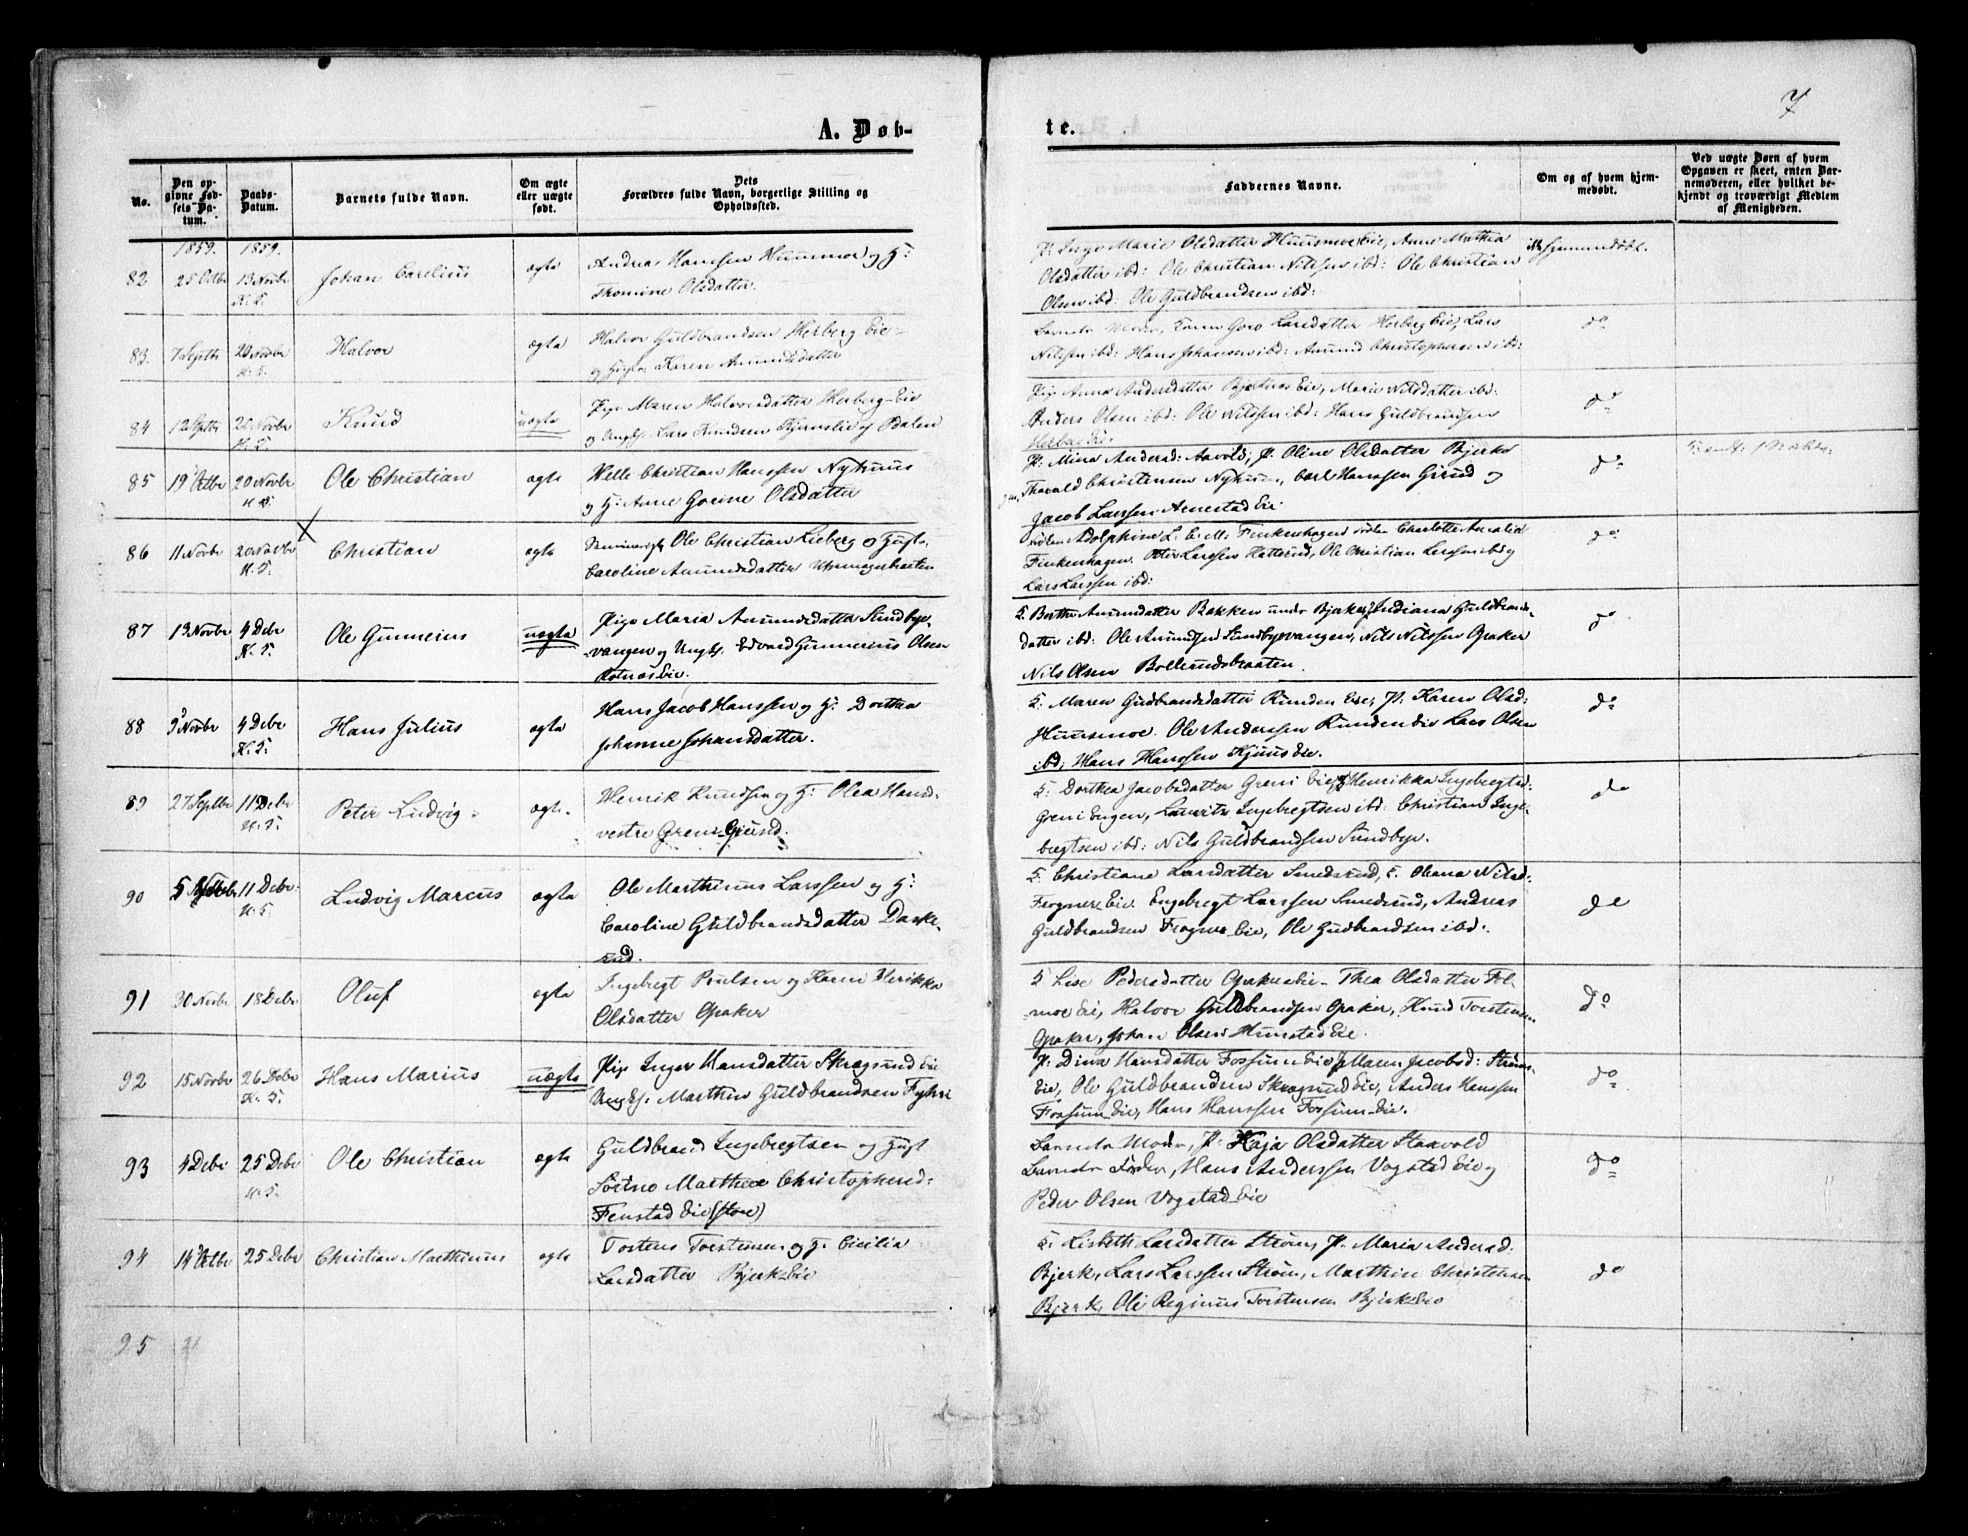 7
A. Døb-
te.
No.
Den op-
givne Fød-
sels Da-
tum.
Daabs-
Datum.
Barnets fulde Navn.
Om ægte
eller uægte
født.
Dets
Forældres fulde Navn, borgerlige Stilling og
Opholdssted.
Faddernes Navne.
Om og af hvem hjem-
medøbt.
Ved uægte Børn af hvem
Opgaven er skeet, enten Bar-
nemoderen, eller hvilket be-
kjendt og troværdigt Medlem
af Menigheden.
1859. 1859.
82 25 Octbr 13 Novbr Johan Carelius ægte Andreas Hanssen Huusmoe og H:
K. T. Thomine Olsdatter.
P: Inge Marie Olsdatter Huusmoe Eie, Anne Mathia
Olsdatter ibd: Ole Christian Nilssen ibd: Ole Christian
Olsen ibd: Ole Guldbrandsen ibd:
83. 7 Septbr 20 Novbr Halvor ægte Halvor Guldbrandsen Herberg Eie
H. T. og Karen Amundsdatter
Barnets Moder, Goro Larsdatter Herberg Eie, Lars
Nilssen ibd: Hans Johansen ibd: Amund Christophersen ibd:
do
84 12 Septbr 20 Novbr Knud uægte Pige Maren Halvorsdatter Herberg-Eie
H. T. og Ungk. Lars Knudsen Odalen
Pige Anne Andersdatter Eie, Marie Nilsdatter ibd:
Anders Olsen ibd: Ole Nilssen ibd: Hans Guldbrandsen
Herberg Eie.
do
85 19 Octbr 20 Novbr Ole Christian ægte Helle Christian Hanssen Nyhuus
og H: Anne Gorine Olsdatter
P: Mina Andersd: Aavold, P. Oline Olsdatter Bjerke
Thorvald Christensen Nyhuus, Carl Hanssen Gjerud og
Jacob Larssen Arnestad Eie
do
86 11 Novbr 20 Novbr Christian ægte Ole Christian Lieberg og
H. T. Caroline Amundsdatter
Adolphine L. E. M. Finkenhagen Charlotte Amalia
Finkenhagen. Peter Larssen Hatterud, Ole Christian Larssen ibd og
Lars Larssen ibd:
do
87 13 Novbr 4 Debr Ole Gunneius uægte Pige Maria Amundsdatter Sundbye-
K. T. vangen og Ungk. Edvard Gunnerius Olsen
Eie.
Berthe Amundsdatter Bakken under Bjerke, Indiana Guldbrands-
datter ibd: Ole Amundsen Sundbyevangen, Nils Nilssen Opaker
Nils Olsen Bollerudsbraaten.
do
88 9 Novbr 4 Debr Hans Julius ægte Hans Jacob Hanssen og H: Dorthea
K. T. Johanne Johansdatter.
Maren Gudbrandsdatter Runden Eie, P. Karen Olsd:
Huusmoe. Ole Anderssen Runden Eie Lars Olsen
ibd, Hans Hanssen Kjuus Eie.
do
89 27 Septbr 11 Debr Peter Ludvig ægte Henrik Knudsen og H: Olea Hansd:
H. T. vestre Greni Gjerud.
Dorthea Jacobsdatter Greni Eie, Henrikka Ingebregtsd:
Greni Engen, Lauritz Ingebregtsen ibd: Christian Inge-
bregtsen ibd: Nils Guldbrandsen Sundbye.
do
90 5 11 Debr Ludvig Marcus ægte Ole Marthinus Larssen og H:
H. T. Caroline Guldbrandsdatter Daske-
rud.
Christiane Larsdatter Smedsrud, Oleana Nilsd:
Frogner Eie. Engebregt Larssen Smedsrud, Andreas
Guldbrandsen Frogner Eie, Ole Gudbrandsen ibd:
do
91 30 Novbr 18 Debr Oluf ægte Ingebregt Poulsen og Karen Henrikka
Olsdatter Opaker
Lise Pedersdatter Opaker Eie - Thea Olsdatter Fol-
moe Eie, Halvor Guldbrandsen Opaker, Knud Torstensen
Opaker, Johan Olsen Hunstad Eie.
do
92 15 Novbr 26 Debr Hans Marius uægte Pige Inger Hansdatter Skragsrud Eie
K. T. Ungk. Marthin Guldbrandsen Fyhri
P: Dina Hansdatter Fossum Eie, P. Maren Jacobsd: Strøms
Eie, Ole Guldbrandsen Skragsrud Eie, Anders Hanssen
Fossum Eie, Hans Hanssen Fossum Eie.
do
93 4 Debr 25 Debr Ole Christian ægte Guldbrand Ingebregtsen og
H. T. Marthea Christophersd:
Fenstad Eie (store)
Barnets Moder, P: Kaja Olsdatter Staavold
Barnets Fader, Hans Anderssen Vogstad Eie og
Peder Olsen Vogstad Eie
do
94 14 Octbr 25 Debr Christian Marthinus ægte Tosten Torstensen og H: Cicilia
Larsdatter Bjerk Eie
Lisbeth Larsdatter Strøm, P. Maria Andersd.
Bjerk, Lars Larssen Strøm, Marthin Christensen
Bjerk, Ole Reginus Torstensen Bjerk Eie
do
95 21